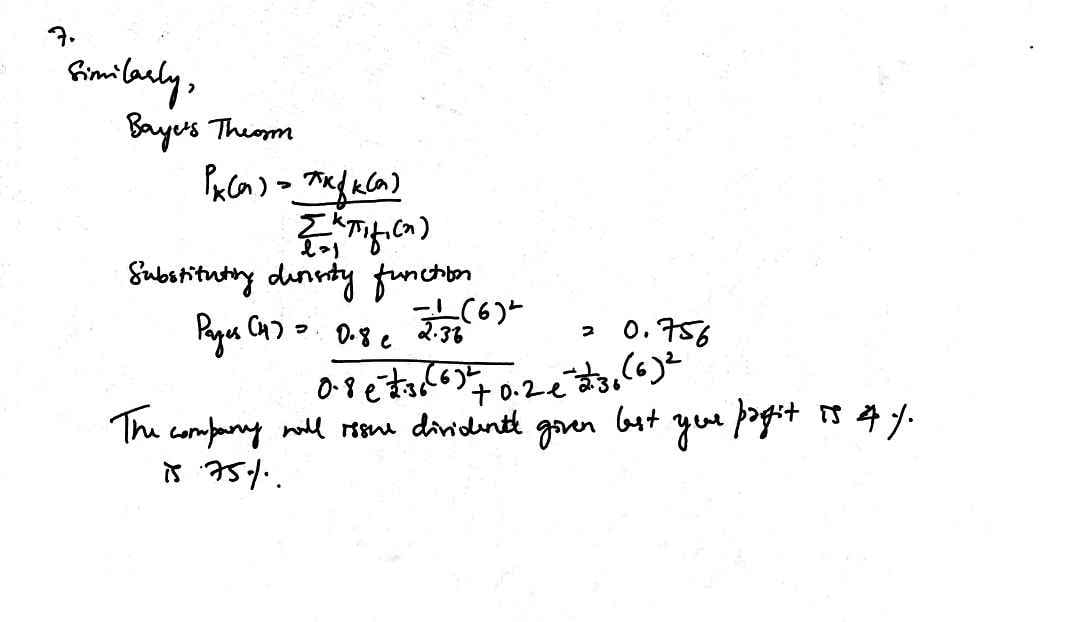 7.
Similarly,
Bayes Theorem
P_K(x) = π_K f_K(x)
Σ^k_{l=1} π_l f_l(x)
Substituting density function
P_yes(4) = 0.8e^{-1/2.36 (6)^2} = 0.756
0.8e^{-1/2.36 (6)^2} + 0.2e^{-1/2.36 (6)^2}
The company will issue dividentt given last year profit is 4%.
is 75%.